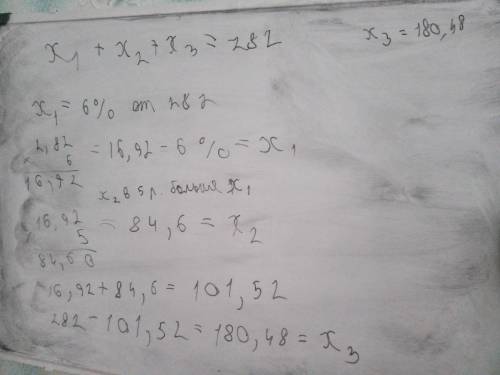 x1 + x2 + x3 = 282
x3 = 180,48
x1 = 6% от 282
2,82
x 6
16,92
= 16,92 - 6% = x1
x2 в 5 р. больше x1
16,92
x 5
84,60
= 84,6 = x2
16,92 + 84,6 = 101,52
282 - 101,52 = 180,48 = x3